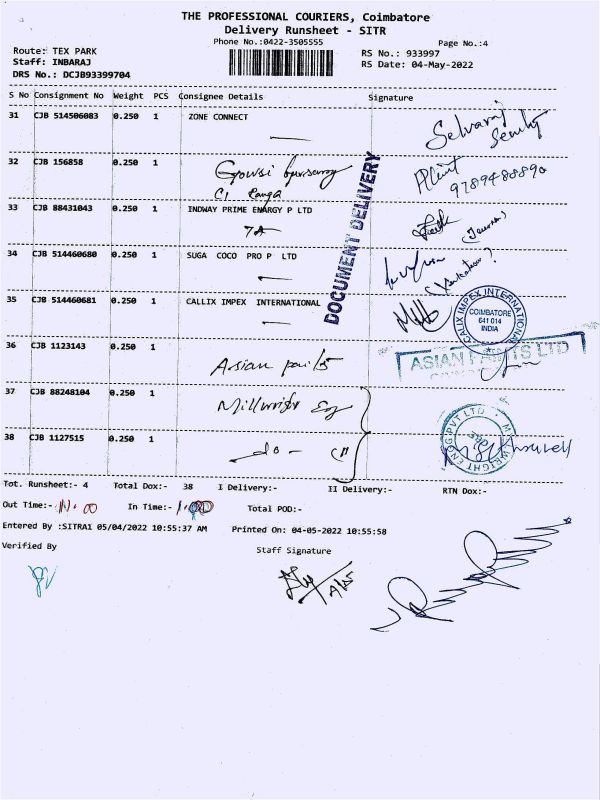 THE PROFESSIONAL COURIERS, Coimbatore
Delivery Runsheet - SITR
Phone No.:0422-3505555
Page No.:4
Route: TEX PARK
Staff: INBARAJ
DRS No.: DCJB93399704
RS No.: 933997
RS Date: 04-May-2022
S No Consignment No Weight PCS Consignee Details Signature
31 CJB 514506083 0.250 1 ZONE CONNECT
Selvaraj
32 CJB 156858 0.250 1
9789488890
33 CJB 88431043 0.250 1 INDWAY PRIME ENARGY P LTD
7A
34 CJB 514460680 0.250 1 SUGA COCO PRO P LTD
35 CJB 514460681 0.250 1 CALLIX IMPEX INTERNATIONAL
DOCUMENT DELIVERY
CALIX IMPEX INTERNATIONAL
COIMBATORE
641 014
INDIA
36 CJB 1123143 0.250 1 Asian paints
ASIAN PAINTS LTD
37 CJB 88248104 0.250 1 Millwright Eng
38 CJB 1127515 0.250 1 -do-
Tot. Runsheet:- 4 Total Dox:- 38 I Delivery:- II Delivery:- RTN Dox:-
Out Time:- 11.00 In Time:- Total POD:-
Entered By :SITRA1 05/04/2022 10:55:37 AM Printed On: 04-05-2022 10:55:58
Verified By
Staff Signature